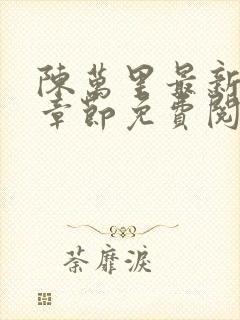 陳萬里最新
章節免費閱
荼靡淚